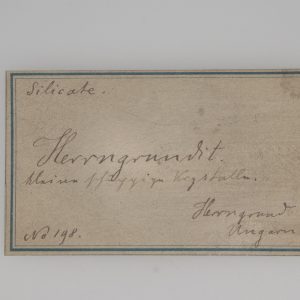 Silicate.
Herrngrundit.
kleine schuppige Krystalle.
Herrngrund
Ungarn
No 198.